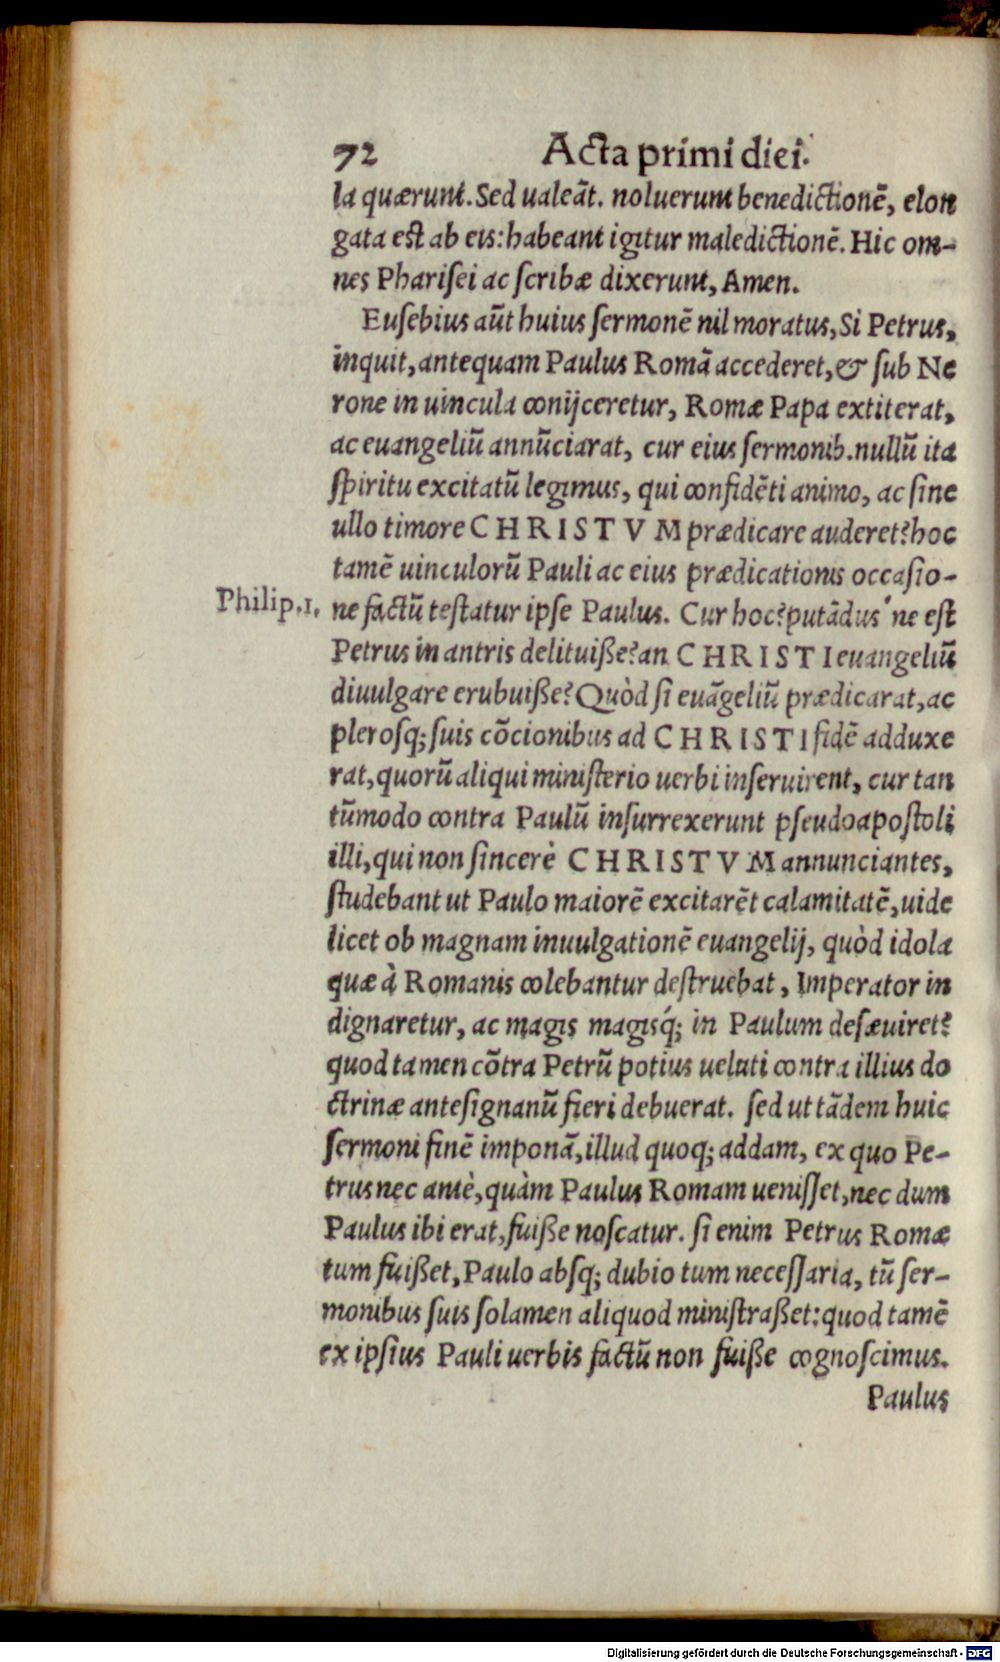 72 Acta primi diei.
la quærunt. Sed ualeãt. noluerunt benedictionẽ, elon
gata est ab eis: habeant igitur maledictionẽ. Hic om-
nes Pharisei ac scribæ dixerunt, Amen.
Eusebius aũt huius sermonẽ nil moratus, Si Petrus,
inquit, antequam Paulus Romã accederet, & sub Ne
rone in uincula conijceretur, Romæ Papa extiterat,
ac euangeliũ annũciarat, cur eius sermonib. nullũ ita
spiritu excitatũ legimus, qui confidẽti animo, ac sine
ullo timore CHRISTVM prædicare auderet? hoc
tamẽ uinculorũ Pauli ac eius prædicationis occasio-
Philip.1. ne factũ testatur ipse Paulus. Cur hoc? putãdus'ne est
Petrus in antris delituiße? an CHRISTI euangeliũ
diuulgare erubuiße? Quòd si euãgeliũ prædicarat, ac
plerosq; suis cõcionibus ad CHRISTI fidẽ adduxe
rat, quorũ aliqui ministerio uerbi inseruirent, cur tan
tũmodo contra Paulũ insurrexerunt pseudoapostoli
illi, qui non sincerè CHRISTVM annunciantes,
studebant ut Paulo maiorẽ excitarẽt calamitatẽ, uide
licet ob magnam inuulgationẽ euangelij, quòd idola
quæ à Romanis colebantur destruebat, Imperator in
dignaretur, ac magis magisq́; in Paulum desæuiret?
quod tamen cõtra Petrũ potius ueluti contra illius do
ctrinæ antesignanũ fieri debuerat. sed ut tãdem huic
sermoni finẽ imponã, illud quoq; addam, ex quo Pe-
trus nec antè, quàm Paulus Romam uenisset, nec dum
Paulus ibi erat, fuiße noscatur. si enim Petrus Romæ
tum fuißet, Paulo absq; dubio tum necessaria, tũ ser-
monibus suis solamen aliquod ministraßet: quod tamẽ
ex ipsius Pauli uerbis factũ non fuiße cognoscimus.
Paulus
Digitalisierung gefördert durch die Deutsche Forschungsgemeinschaft - DFG